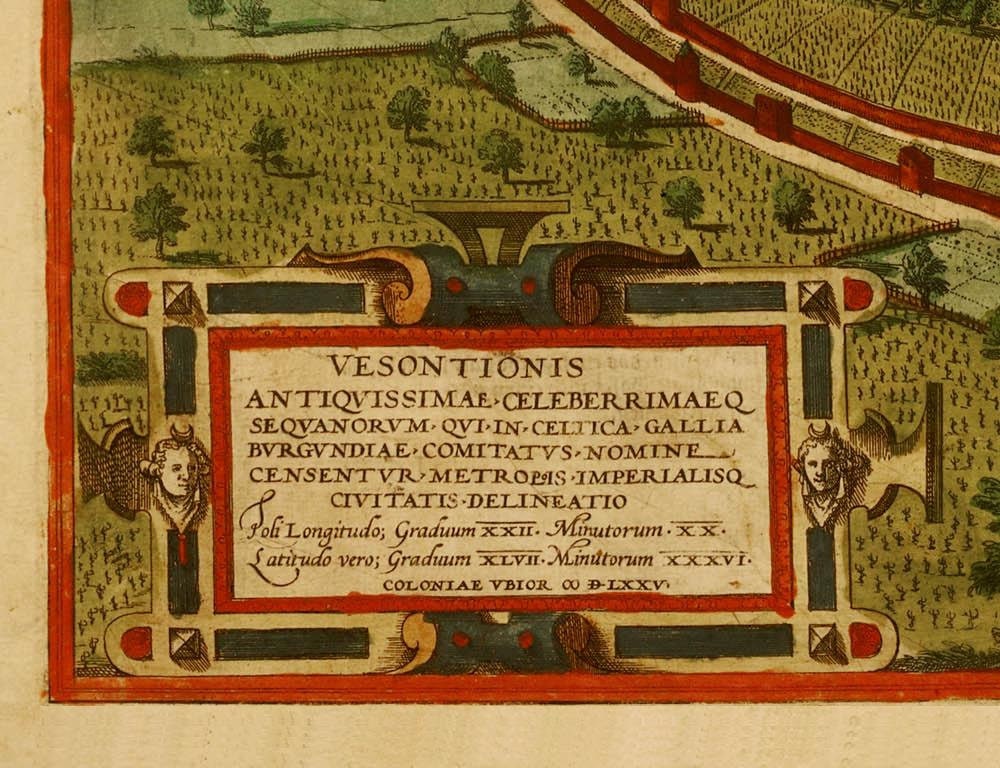 VESONTIONIS
ANTIQVISSIMAE· CELEBERRIMAEQ
SEQVANORVM· QVI· IN· CELTICA· GALLIA
BVRGVNDIAE· COMITATVS· NOMINE
CENSENTVR· METROPIS· IMPERIALISQ
CIVITATIS· DELINEATIO
Poli Longitudo; Graduum XXII. Minutorum· XX.
Latitudo vero; Graduum XLVII· Minutorum XXXVI.
COLONIAE VBIOR ꝏ D·LXXV.